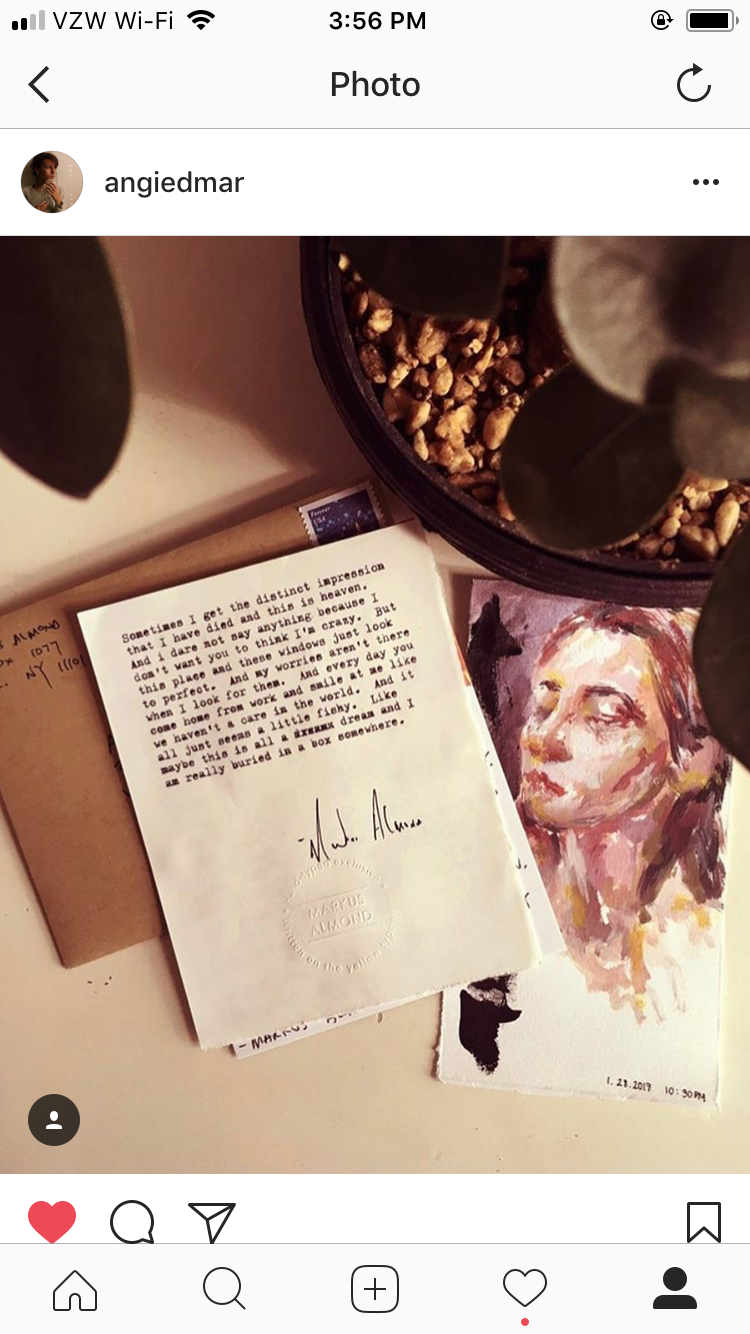 VZW Wi-Fi
3:56 PM
Photo
angiedmar
Forever
USA
ALMOND
1077
NY 11101
Sometimes I get the distinct impression
that I have died and this is heaven.
And i dare not say anything because I
don't want you to think I'm crazy. But
this place and these windows just look
to perfect. And my worries aren't there
when I look for them. And every day you
come home from work and smile at me like
we haven't a care in the world. And it
all just seems a little fishy. Like
maybe this is all a dream and I
am really buried in a box somewhere.
MARKUS
ALMOND
written on the yellow
- MARKUS
1.28.2017 10:30PM